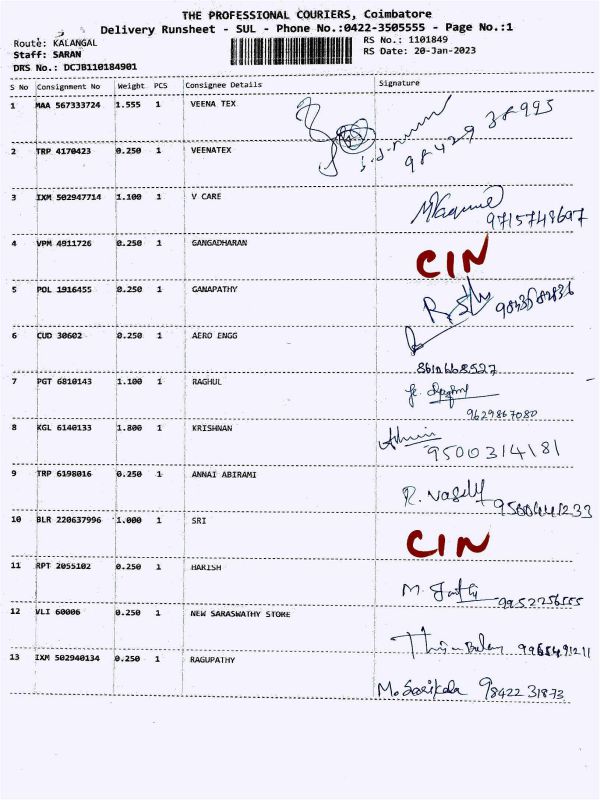 THE PROFESSIONAL COURIERS, Coimbatore
Delivery Runsheet - SUL - Phone No.:0422-3505555 - Page No.:1
Route: KALANGAL
RS No.: 1101849
Staff: SARAN
RS Date: 20-Jan-2023
DRS No.: DCJB110184901
S No Consignment No Weight PCS Consignee Details Signature
1 MAA 567333724 1.555 1 VEENA TEX
98429 38995
2 TRP 4170423 0.250 1 VEENATEX
3 IXM 502947714 1.100 1 V CARE
9715748697
4 VPM 4911726 0.250 1 GANGADHARAN
CIN
5 POL 1916455 0.250 1 GANAPATHY
6 CUD 30602 0.250 1 AERO ENGG
8610668527
7 PGT 6810143 1.100 1 RAGHUL
9629867080
8 KGL 6140133 1.800 1 KRISHNAN
9500314181
9 TRP 6198016 0.250 1 ANNAI ABIRAMI
9500441233
10 BLR 220637996 1.000 1 SRI
CIN
11 RPT 2055102 0.250 1 HARISH
9952256555
12 VLI 60006 0.250 1 NEW SARASWATHY STORE
13 IXM 502940134 0.250 1 RAGUPATHY
M. Sasikala 98422 31873